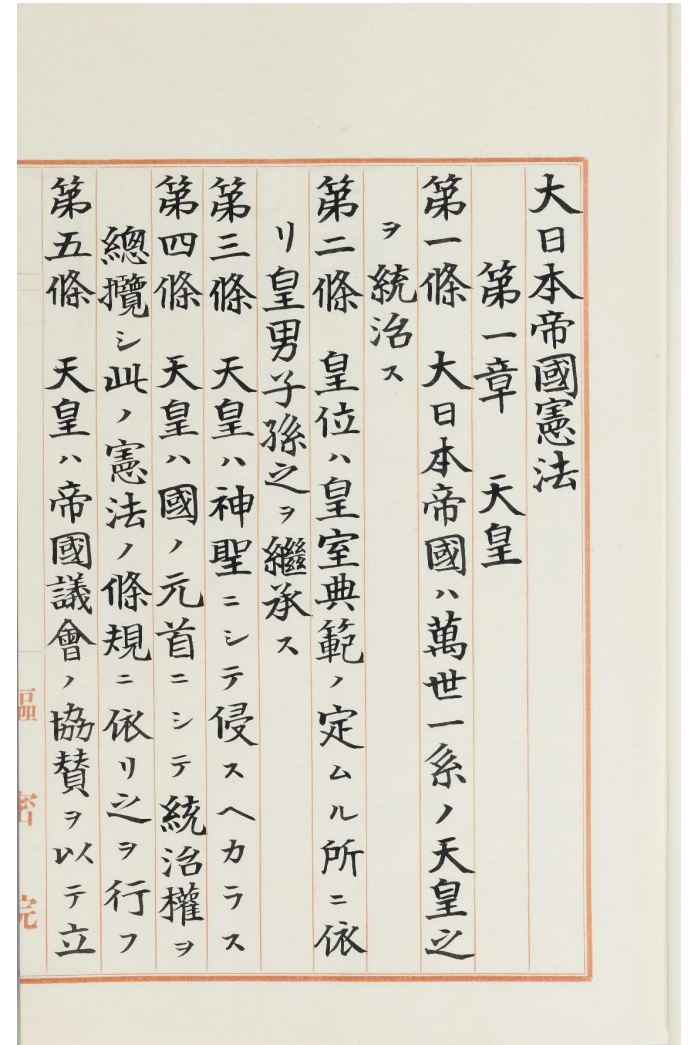 大日本帝國憲法
第一章 天皇
第一條 大日本帝國ハ萬世一系ノ天皇之
ヲ統治ス
第二條 皇位ハ皇室典範ノ定ムル所ニ依
リ皇男子孫之ヲ繼承ス
第三條 天皇ハ神聖ニシテ侵スヘカラス
第四條 天皇ハ國ノ元首ニシテ統治權ヲ
總攬シ此ノ憲法ノ條規ニ依リ之ヲ行フ
第五條 天皇ハ帝國議會ノ協賛ヲ以テ立
樞密院